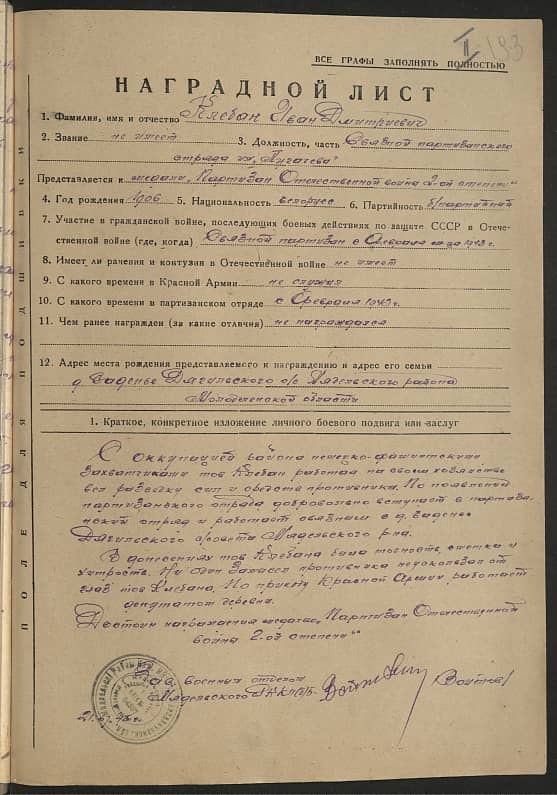 II 193
ВСЕ ГРАФЫ ЗАПОЛНЯТЬ ПОЛНОСТЬЮ
НАГРАДНОЙ ЛИСТ
1. Фамилия, имя и отчество Клебан Иван Дмитриевич
2. Звание не имеет 3. Должность, часть Связной партизанского
отряда им.
Представляется к медали „Партизан Отечественной войны 2-ой степени"
4. Год рождения 1906 5. Национальность белорусс 6. Партийность б/партийный
7. Участие в гражданской войне, последующих боевых действиях по защите СССР в Отече-
ственной войне (где, когда) Связной партизан с Февраля 1943 г.
8. Имеет ли ранения и контузии в Отечественной войне не имеет
9. С какого времени в Красной Армии не служил
10. С какого времени в партизанском отряде с Февраля 1943 г.
11. Чем ранее награжден (за какие отличия) не награждался
12. Адрес места рождения представляемого к награждению и адрес его семьи
д. Дягильского с/с Мядельского района
Молодечненской области
1. Краткое, конкретное изложение личного боевого подвига или заслуг
С оккупацией района немецко-фашистскими
захватчиками тов Клебан работая на своем хозяйстве
вел разведку сил и средств противника. По появлении
партизанского отряда добровольно вступает в партиза-
нский отряд и работает связным с д.
Дягильского с/совета Мядельского р-на.
В донесениях тов Клебана была точность, сметка и
хитрость. Ни один замысел противника не ускользал от
глаз тов Клебана. По приходу Красной Армии работает
депутатом деревни.
Достоин награждения медалью „Партизан Отечественной
война 2-ой степени"
Зав. военным отделом
Мядельского РК КП(б)Б
ПОЛЕ ДЛЯ ПОДШИВКИ